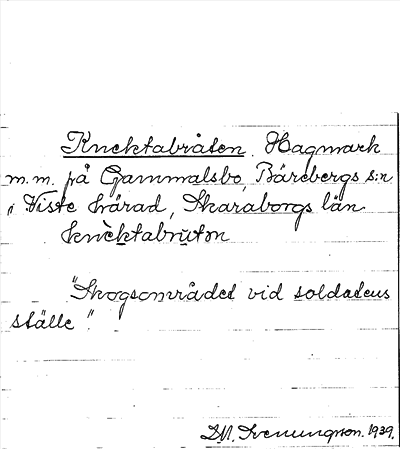 Knektabråten. Hagmark
m.m. på Gammalsbo, Bärebergs s:n
i Viste härad, Skaraborgs län.
knèktabru̇tən
"Skogsområdet vid soldatens
ställe".
D.M. Svenungsson. 1939.